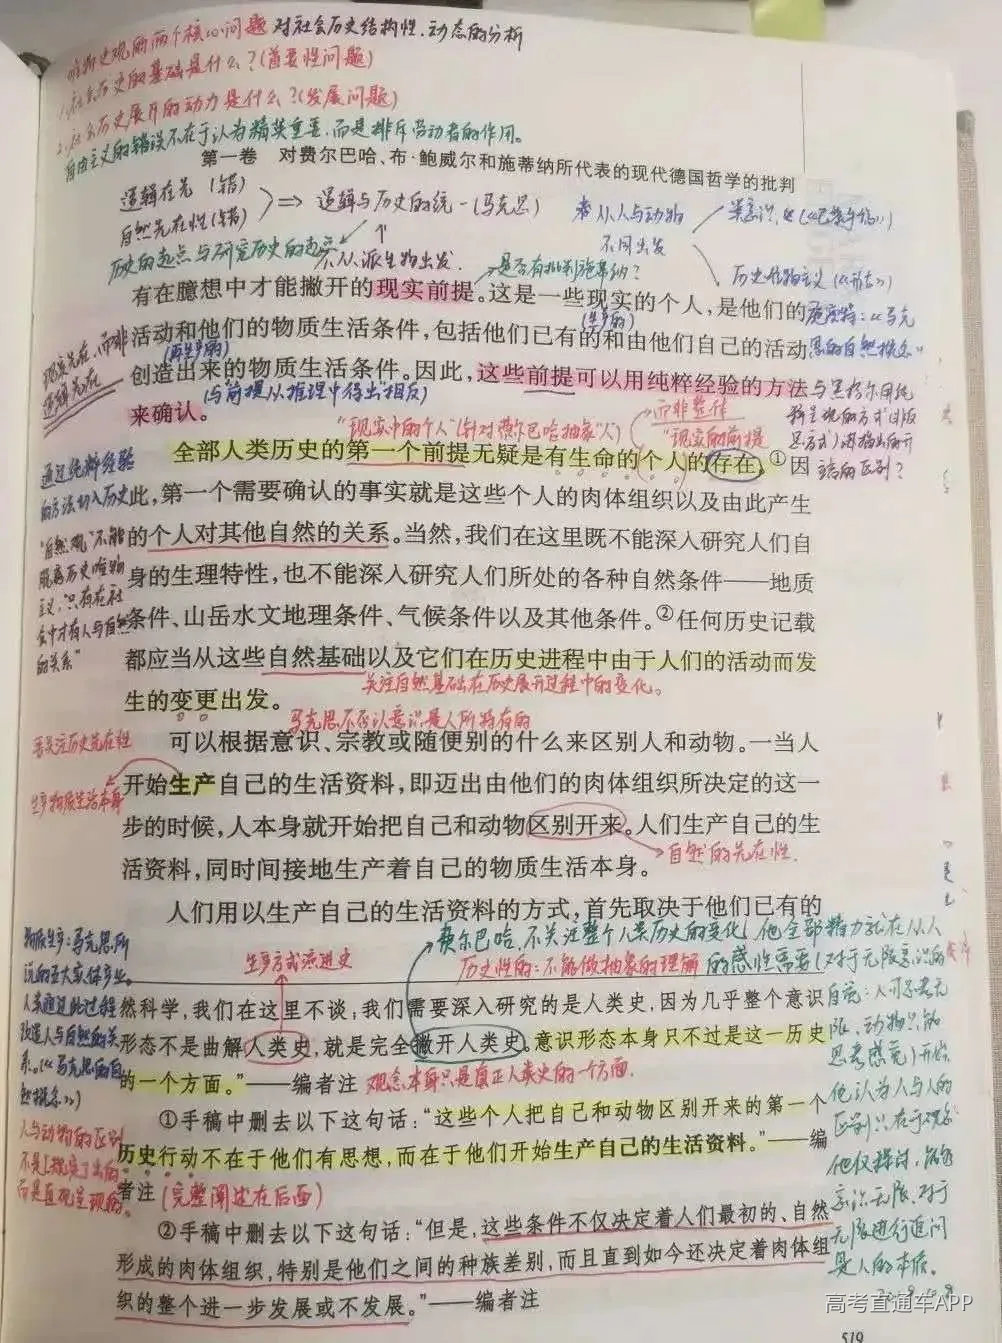 唯物史观的两个核心问题 对社会历史结构性、动态的分析
1.社会历史的基础是什么？(首要性问题)
2.社会历史展开的动力是什么？(发展问题)
自由主义的错误不在于认为精英重要，而是排斥劳动者的作用。
第一卷 对费尔巴哈、布·鲍威尔和施蒂纳所代表的现代德国哲学的批判
逻辑在先（错）
自然先在性（错）
⇒ 逻辑与历史的统一（马克思）
从人与动物
不同出发
历史的起点与研究历史的起点
不从派生物出发.
是否有批判施蒂纳？
有在臆想中才能撇开的现实前提。这是一些现实的个人，是他们的
(生产的)
活动和他们的物质生活条件，包括他们已有的和由他们自己的活动
(再生产的)
创造出来的物质生活条件。因此，这些前提可以用纯粹经验的方法
(与前提从推理中得出相反)
来确认。
现实先在，而非
逻辑先在
而非整体
"现实中的个人"(针对费尔巴哈抽象"人")
"现实的前提
全部人类历史的第一个前提无疑是有生命的个人的存在。①因
此，第一个需要确认的事实就是这些个人的肉体组织以及由此产生
的个人对其他自然的关系。当然，我们在这里既不能深入研究人们自
身的生理特性，也不能深入研究人们所处的各种自然条件——地质
条件、山岳水文地理条件、气候条件以及其他条件。②任何历史记载
都应当从这些自然基础以及它们在历史进程中由于人们的活动而发
生的变更出发。
通过纯粹经验
的方法切入历史
"自然观"不能
脱离历史唯物
主义，只有在社
会中才有人与自然
的关系"
关注自然基础在历史展开过程中的变化。
马克思不否认意识是人所特有的
可以根据意识、宗教或随便别的什么来区别人和动物。一当人
开始生产自己的生活资料，即迈出由他们的肉体组织所决定的这一
步的时候，人本身就开始把自己和动物区别开来。人们生产自己的生
活资料，同时间接地生产着自己的物质生活本身。
生产物质生活本身
自然的先在性.
人们用以生产自己的生活资料的方式，首先取决于他们已有的
费尔巴哈不关注整个人类历史的变化，他全部精力就在从人
生产方式演进史
历史性的：不能做抽象的理解
的感性需要(对于无限意识的
然科学，我们在这里不谈；我们需要深入研究的是人类史，因为几乎整个意识
形态不是曲解人类史，就是完全撇开人类史。意识形态本身只不过是这一历史
的一个方面。"——编者注
观念本身只是真正人类史的一方面.
①手稿中删去以下这句话："这些个人把自己和动物区别开来的第一个
历史行动不在于他们有思想，而在于他们开始生产自己的生活资料。"——编
者注
(完整阐述在后面)
②手稿中删去以下这句话："但是，这些条件不仅决定着人们最初的、自然
形成的肉体组织，特别是他们之间的种族差别，而且直到如今还决定着肉体组
织的整个进一步发展或不发展。"——编者注
他认为人与人的
是人的本质。
高考直通车APP
519